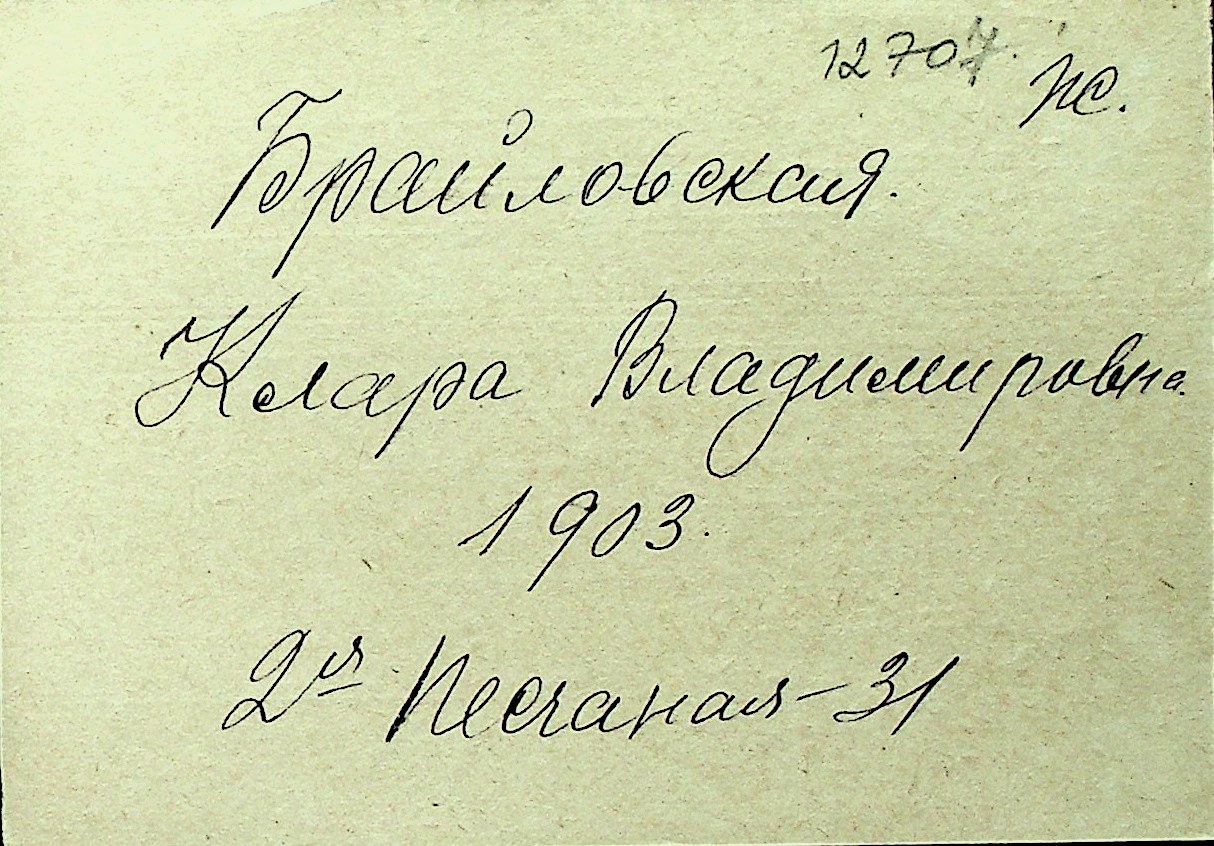 12707. пс.
Брайловская.
Клара Владимировна.
1903.
2ая Песчаная - 31